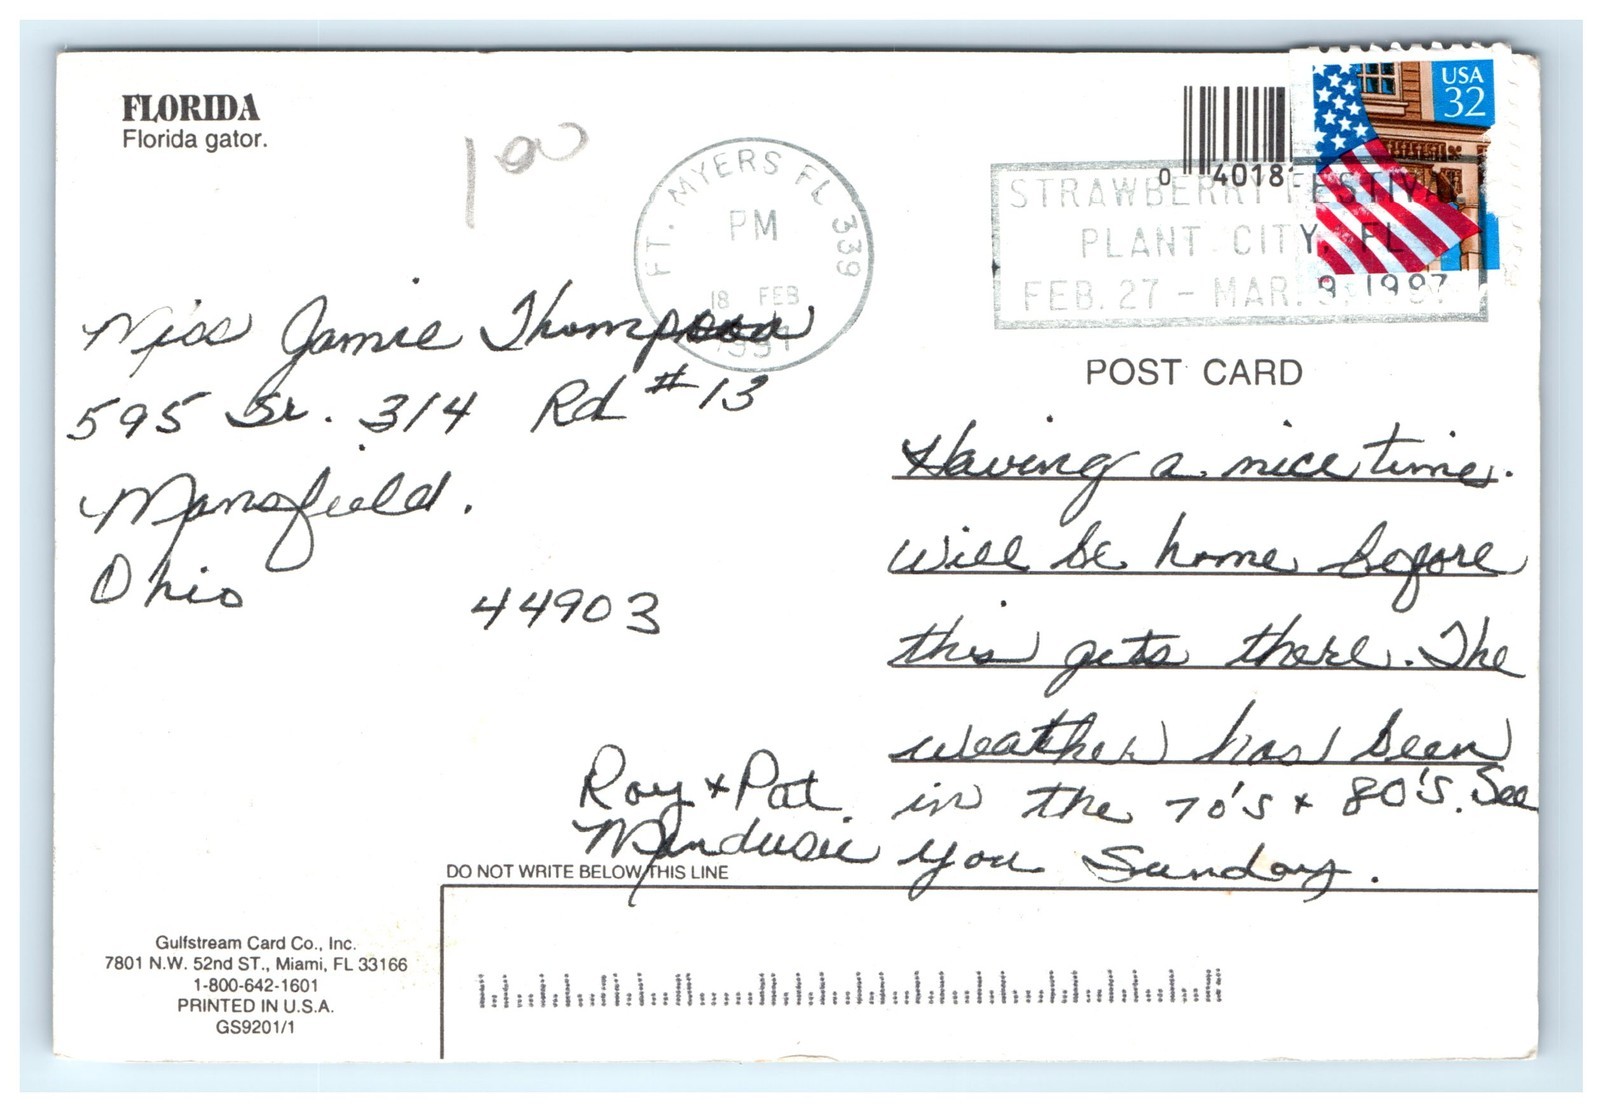 FLORIDA
Florida gator.
100
FT. MYERS FL 339
PM
18 FEB
1997
0 4018
USA
32
STRAWBERRY FESTIVAL
PLANT CITY, FL
FEB. 27 - MAR. 9, 1997
POST CARD
Miss Jamie Thompson
595 Sr. 314 Rd #13
Mansfield.
Ohio
44903
Having a nice time.
Will be home before
this gets there. The
weather has been
in the 70's + 80's. See
you Sunday.
Roy + Pat
DO NOT WRITE BELOW THIS LINE
Gulfstream Card Co., Inc.
7801 N.W. 52nd ST., Miami, FL 33166
1-800-642-1601
PRINTED IN U.S.A.
GS9201/1